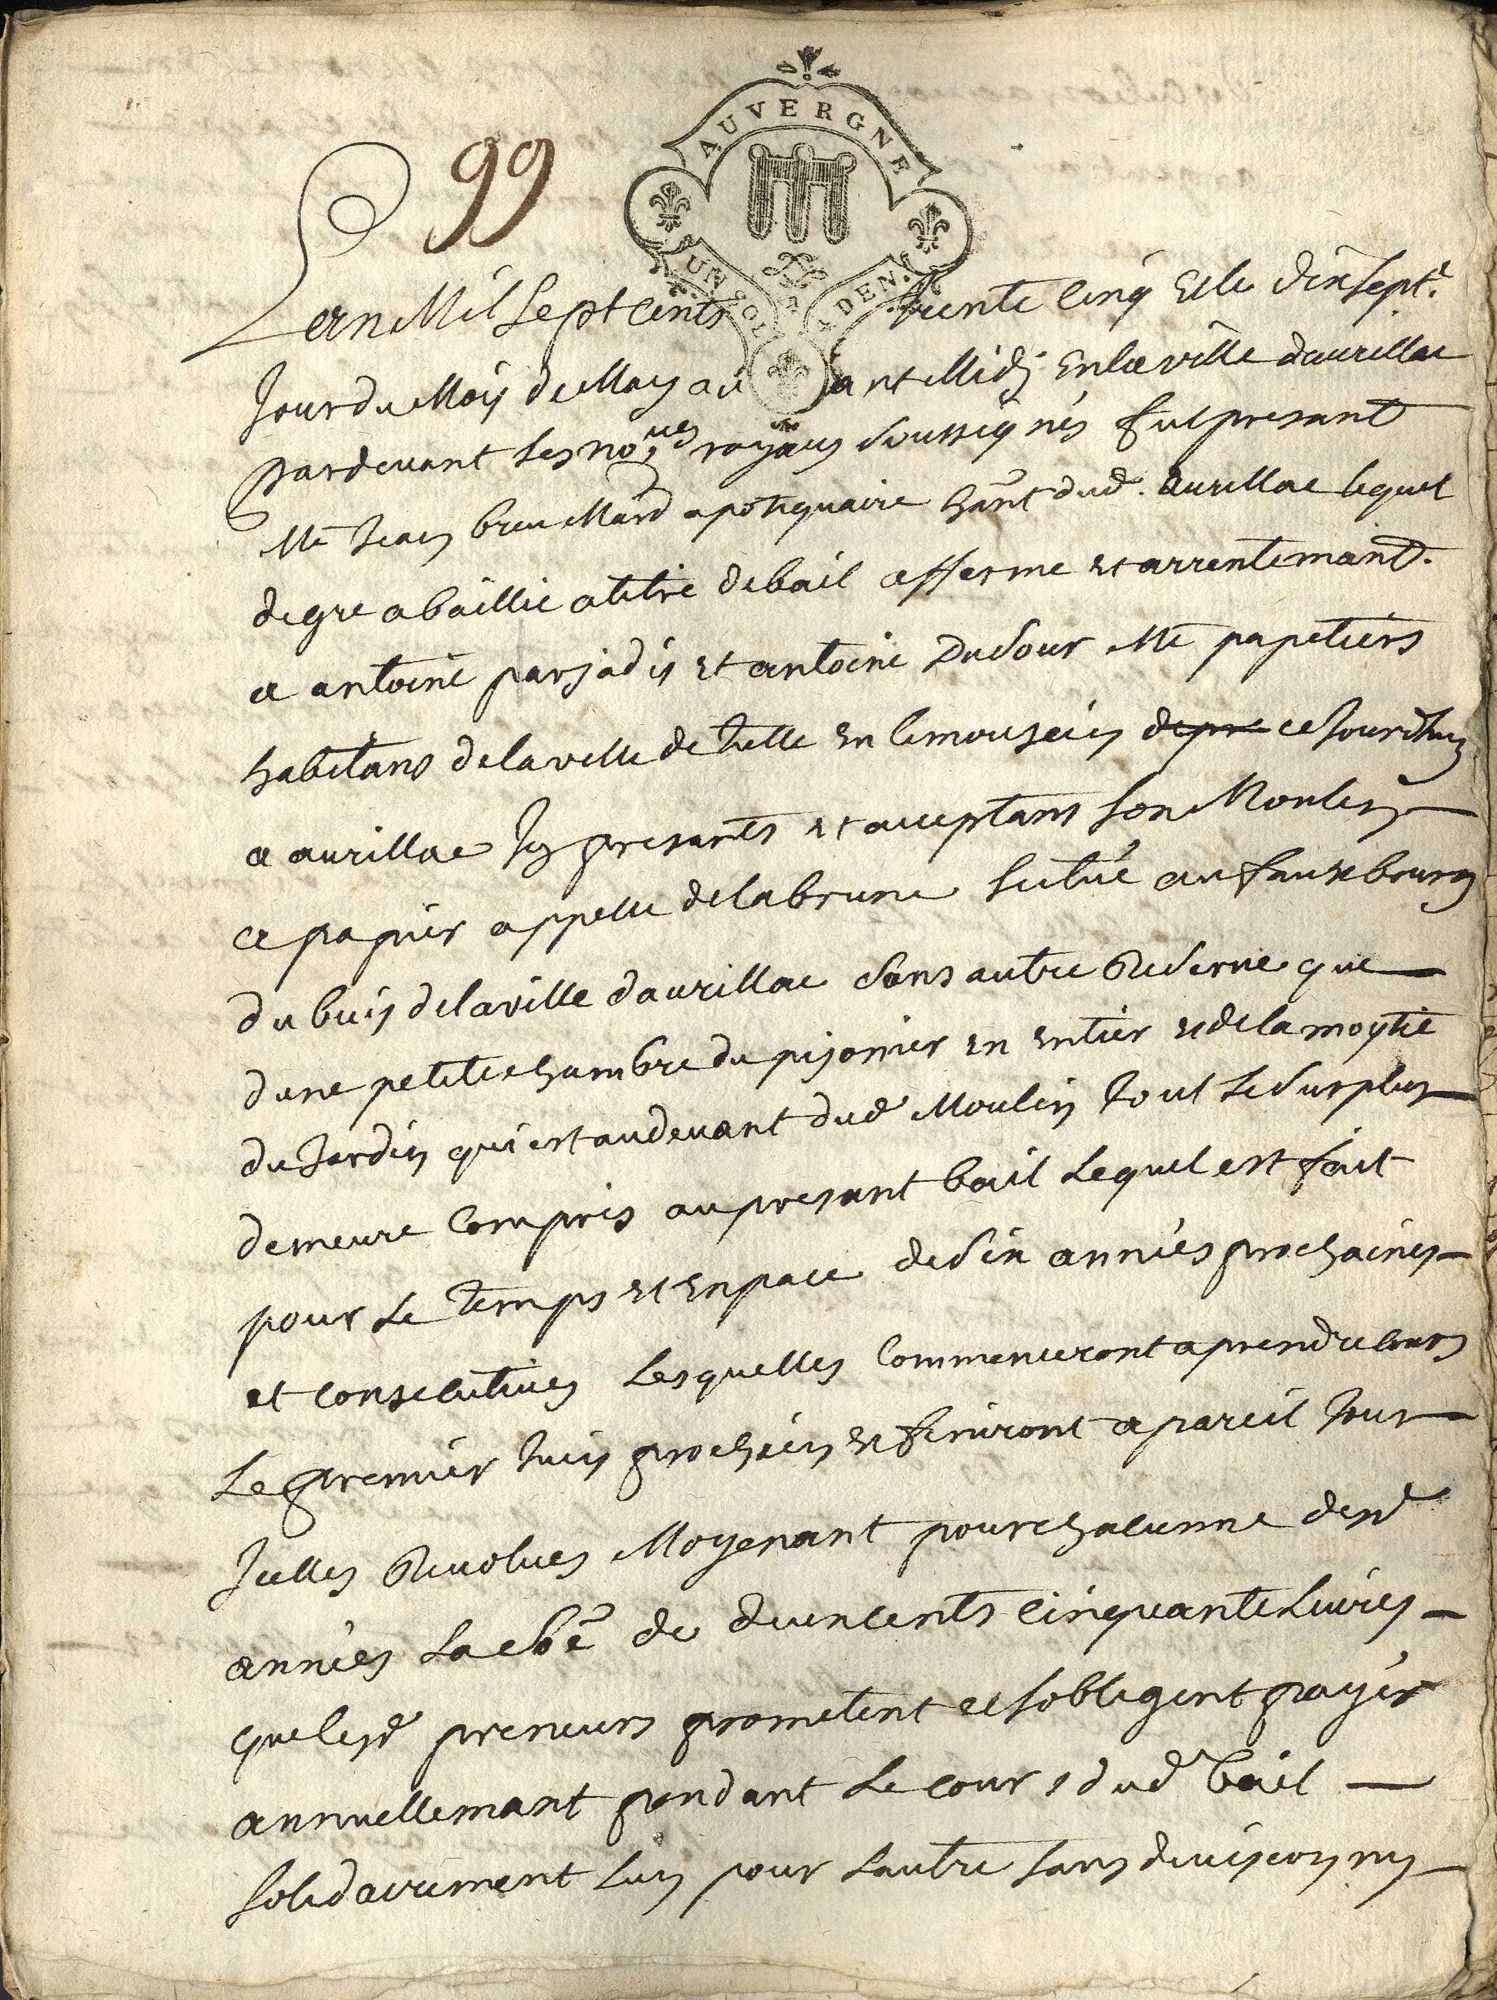 99
AUVERGNE
UN SOL 4 DEN.
Lan Mil Sept Cents trente Cinq et le dixsept.e
Jour du Mois de May avant Midy en la ville daurillac
pardevant les no.res royaux soussignés fut presant
Me Jean breu Mard apotiquaire hant dud. aurillac lequel
de gre a baillie a titre de bail afferme et arrentemant.
a antoine parjadis et antoine Dufour Me papetiers
habitans de la ville de tulle en limousein depre ce jourdhuy
a aurillac Jcy presants et acceptans son Moulin
a papier appelle de la brune scitué au fauxbourg
du buis de la ville daurillac sans autre Reserve que
dune petite chambre du pijonier en entier et de la moytié
du Jardin qui est audevant dud Moulin tout le surplus
demeure Compris au presant bail Lequel est fait
pour Le temps et espace de six années prochaines
et consecutives Lesquelles Commenceront a prendre cours
Le premier Juin prochein et finiront a pareil Jour
Jcelles Revolues Moyenant pour chacunne desd
années La sōe de deux cents Cinquante Livres
que lesd preneurs prometent et sobligent payer
annuellemant pendant Le cours dud bail
solidairement Lun pour Lautre sans division ny